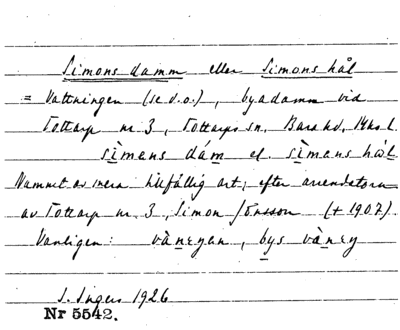 Simons damm eller Simons hål
= Vattningen (se d.o.), byadamm vid
Tottarp nr 3, Tottarps sn, Bara hd, Mhs l.
sìmɐns dám el. sìmɐns hɑ́l
Namnet av mera tillfällig art; efter arrendatorn
av Tottarp nr 3, Simon Jönsson (+ 1907).
Vanligen: , bys
I. Ingers 1926
Nr 5542.